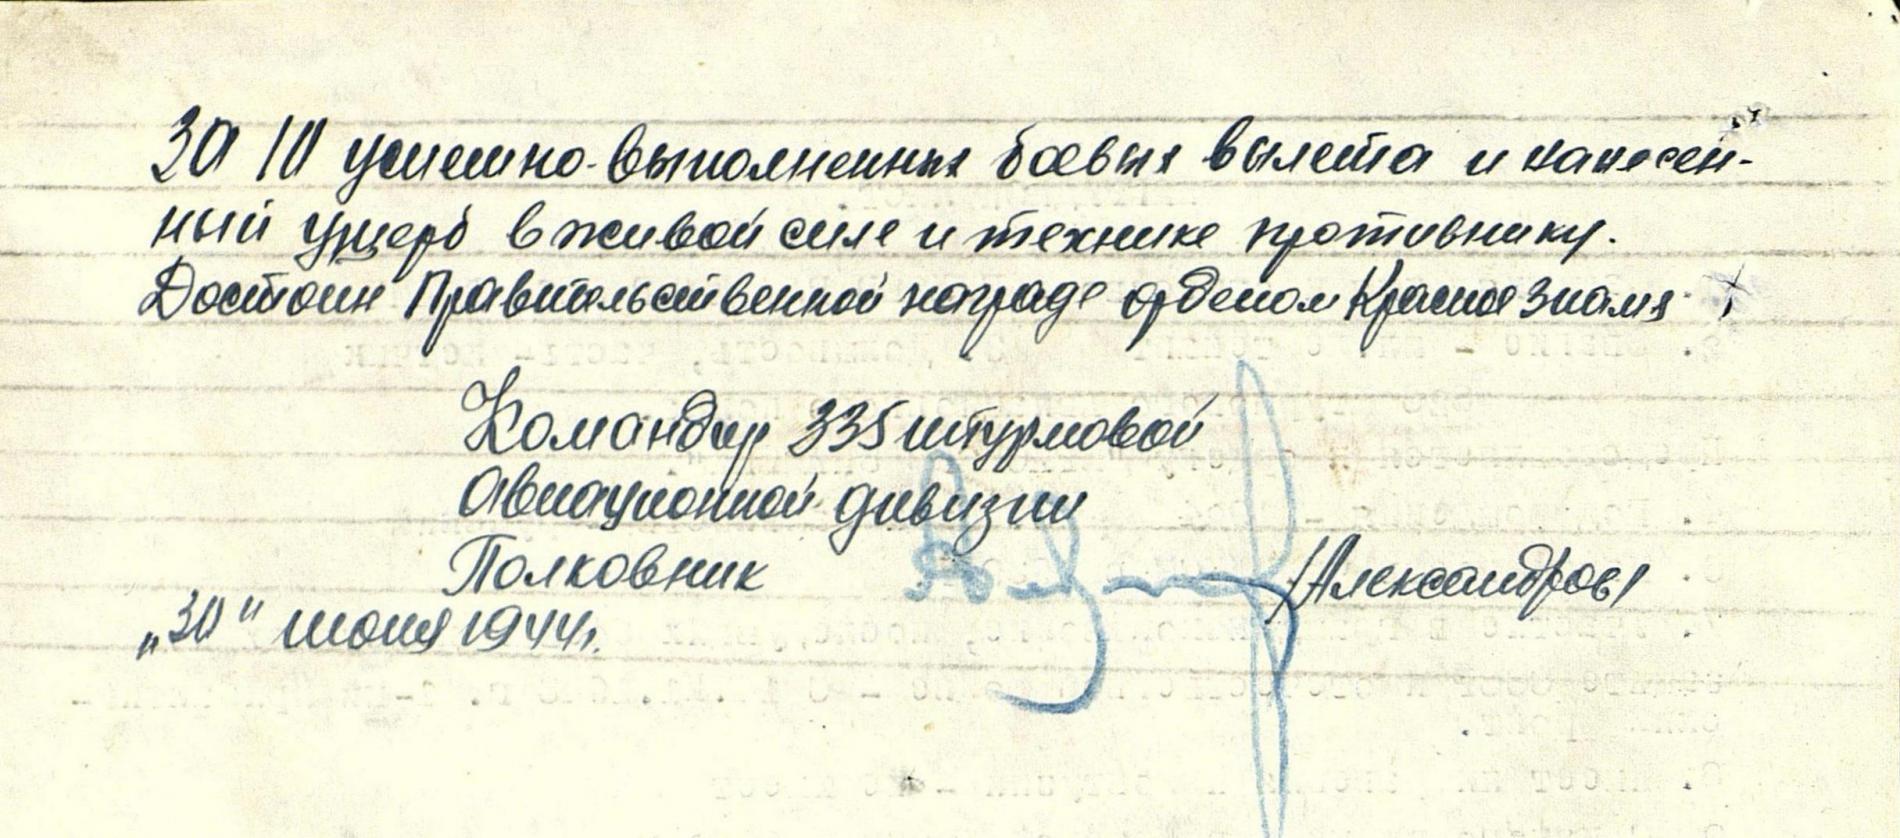 За 10 успешно-выполненных боевых вылета и нанесен-
ный ущерб в живой силе и технике противнику.
Достоин Правительственной награде орденом Красное Знамя
Командир 335 штурмовой
Авиационной дивизии
Полковник /Александров/
„30" июня 1944г.